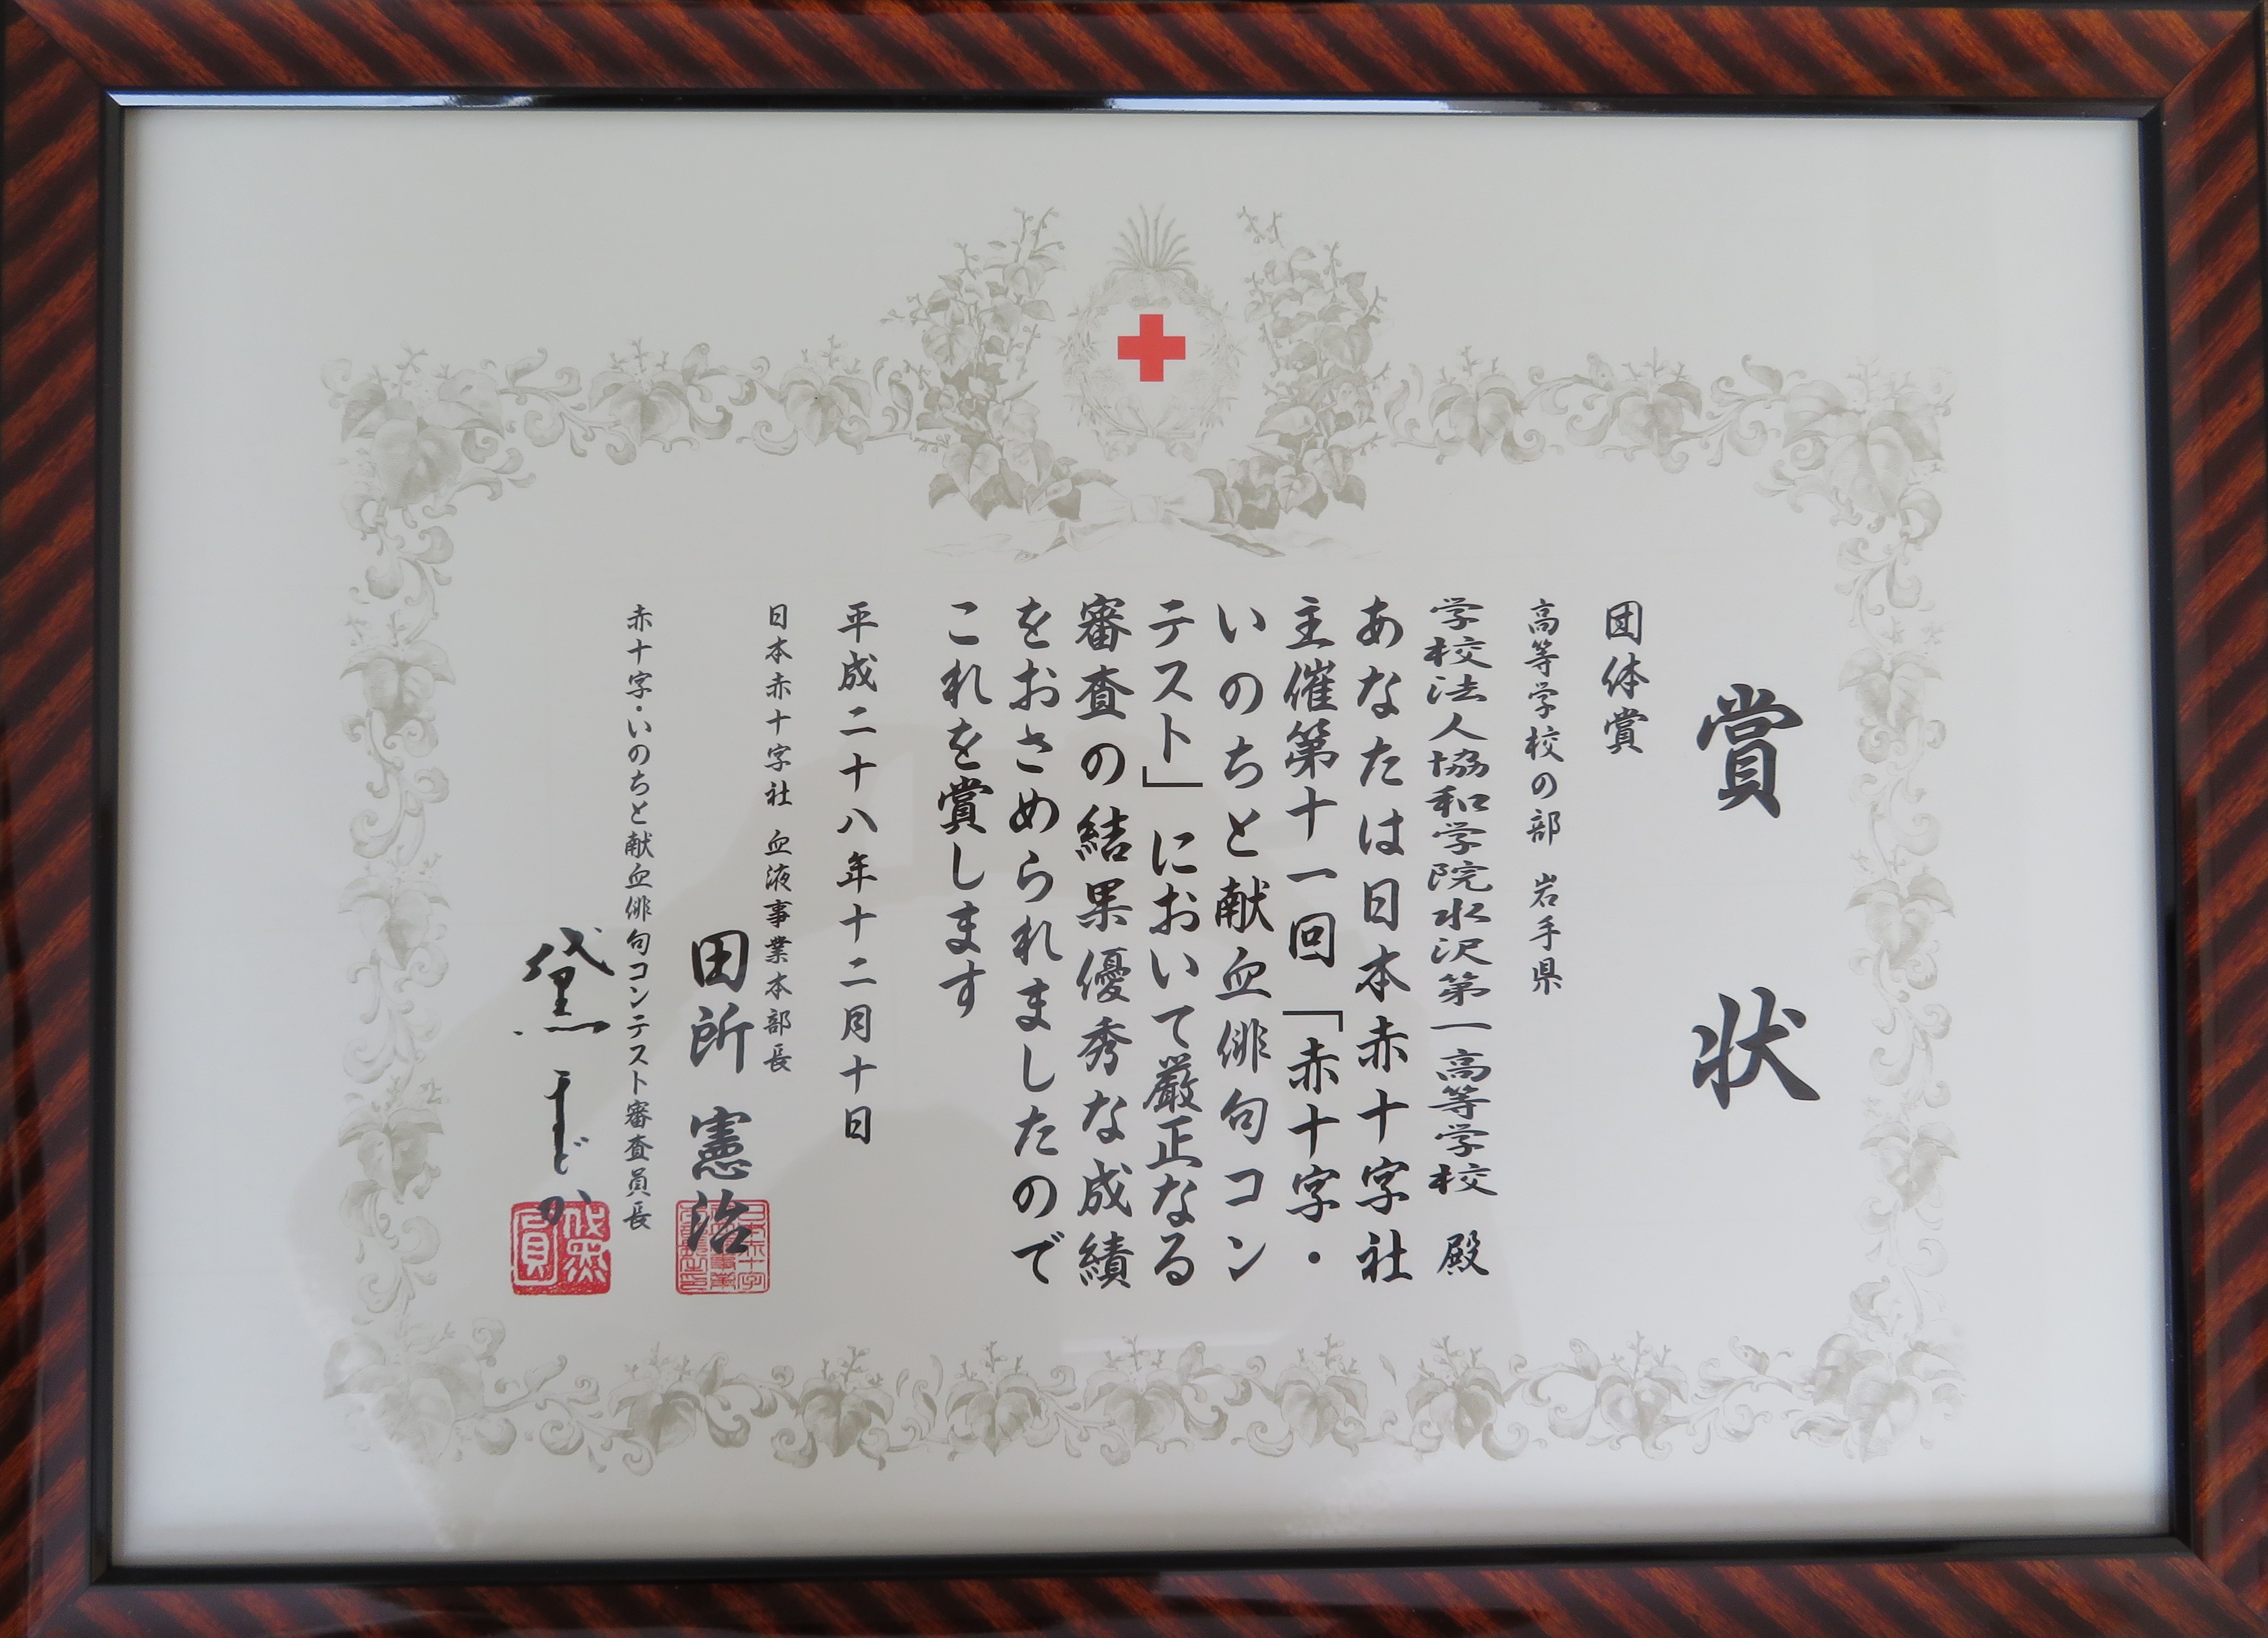 賞状
団体賞
高等学校の部 岩手県
学校法人協和学院水沢第一高等学校 殿
あなたは日本赤十字社
主催第十一回「赤十字・
いのちと献血俳句コン
テスト」において厳正なる
審査の結果優秀な成績
をおさめられましたので
これを賞します
平成二十八年十二月十日
日本赤十字社 血液事業本部長
田所 憲治
赤十字・いのちと献血俳句コンテスト審査員長
黛 まどか